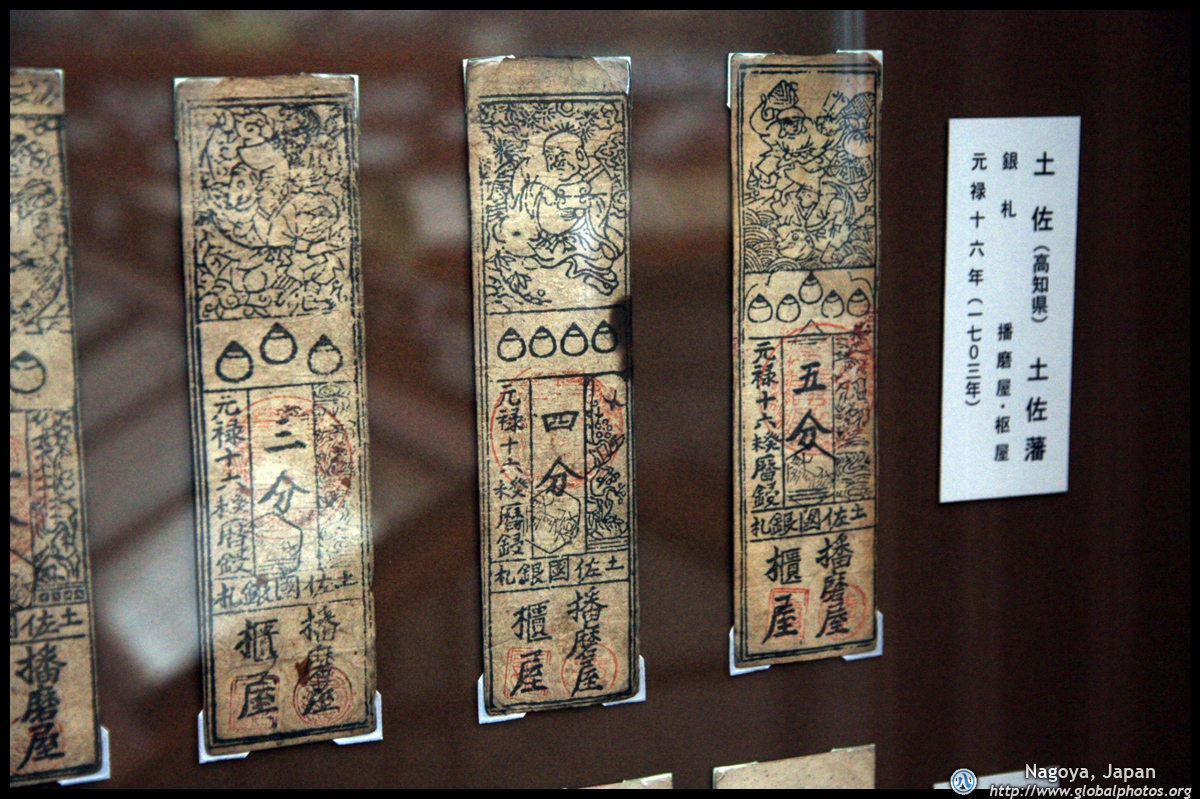 土佐（高知県）　土佐藩
銀札　播磨屋・枢屋
元禄十六年（一七〇三年）
五分
元禄十六
土佐國銀札
播磨屋
櫃屋
四分
元禄十六
土佐國銀札
播磨屋
櫃屋
三分
元禄十六
土佐國銀札
播磨屋
櫃屋
土佐
播磨屋
Nagoya, Japan
http://www.globalphotos.org